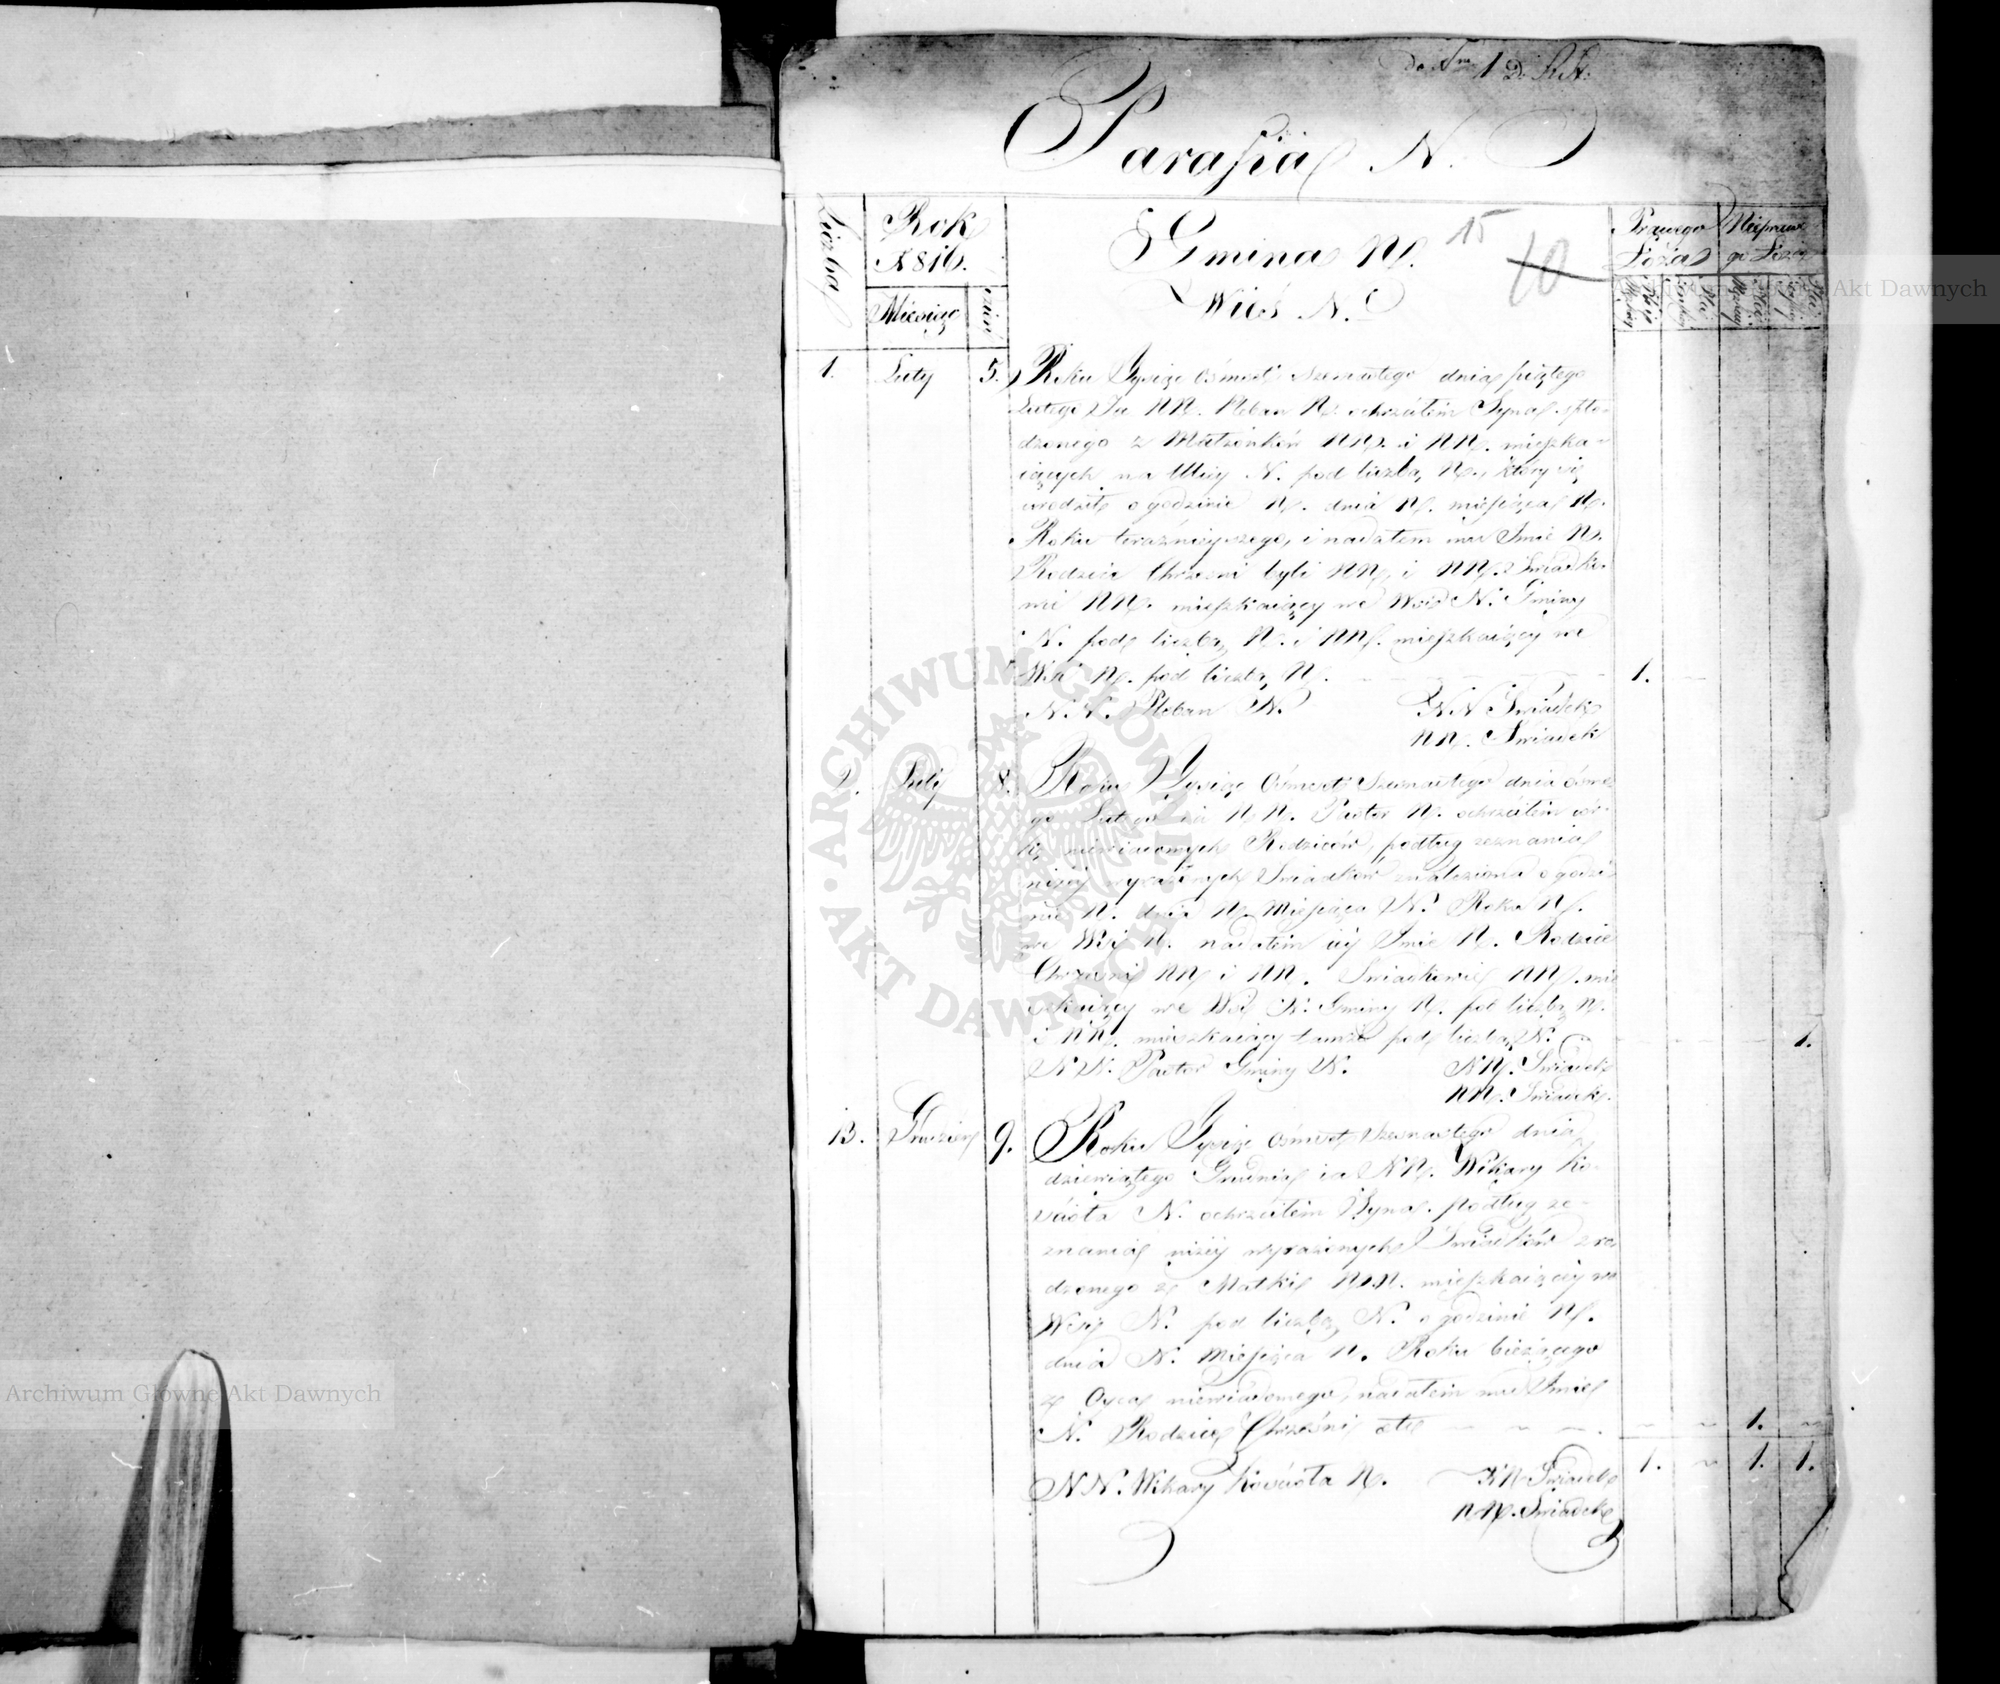 Do Nro 1 D.
Parafia N.
Liczba
Rok
1816.
Miesiąc
Dzień
Gmina N.
15
10
Wieś N.
Prawego
Łoża
Nieprawe
go Łoża
1. Luty 5. Roku Tysiąc Ośmset Szesnastego dnia piątego
Lutego Ja NN. Pleban N. ochrzciłem Syna spło-
dzonego z Małżonków NN. i NN. mieszka-
iących na Ulicy N. pod liczbą N., który się
urodził o godzinie N. dnia N. miesiąca N.
Roku teraźnieyszego, i nadałem mu Imie N.
Rodzice Chrzesni byli NN. i NN. Świadko-
wie NN. mieszkaiący we Wsi N. Gminy
N. pod liczbą N. i NN. mieszkaiący we
Wsi N. pod liczbą N. 1.
N.N. Pleban N. NN Świadek
NN. Świadek
2. Luty 8. Roku Tysiąc Ośmset Szesnastego dnia ósme
go Lutego ia NN. Pastor N. ochrzciłem cór-
kę niewiadomych Rodziców, podług zeznania
niżéy wyrażonych Świadków znaleziona o godzi-
nie N. dnia N. Miesiąca N. Roku N.
we Wsi N. nadałem iéy Imie N. Rodzice
Chrzesni NN i NN. Świadkowie NN. mie
szkaiący we Wsi N. Gminy N. pod liczbą N.
i NN. mieszkaiący tamże pod liczbą N. 1.
N N. Pastor Gminy N. NN. Świadek
NN. Świadek.
13. Grudzień 9. Roku Tysiąc Ośmset Szesnastego dnia
dziewiątego Grudnia ia NN. Wikary Ko-
ścioła N. ochrzciłem Syna. podług ze-
znania niżéy wyrażonych Świadków zro
dzonego z Matki N.N. mieszkaiącéy we
Wsi N. pod liczbą N. o godzinie N.
dnia N. Miesiąca N. Roku bieżącego
z Oyca niewiadomego, nadałem mu Imie
N. Rodzice Chrześni etc 1.
1. 1. 1.
N N. Wikary Kościoła N. NN Świadek
NN. Świadek
ARCHIWUM GŁÓWNE AKT DAWNYCH
Archiwum Główne Akt Dawnych
Akt Dawnych